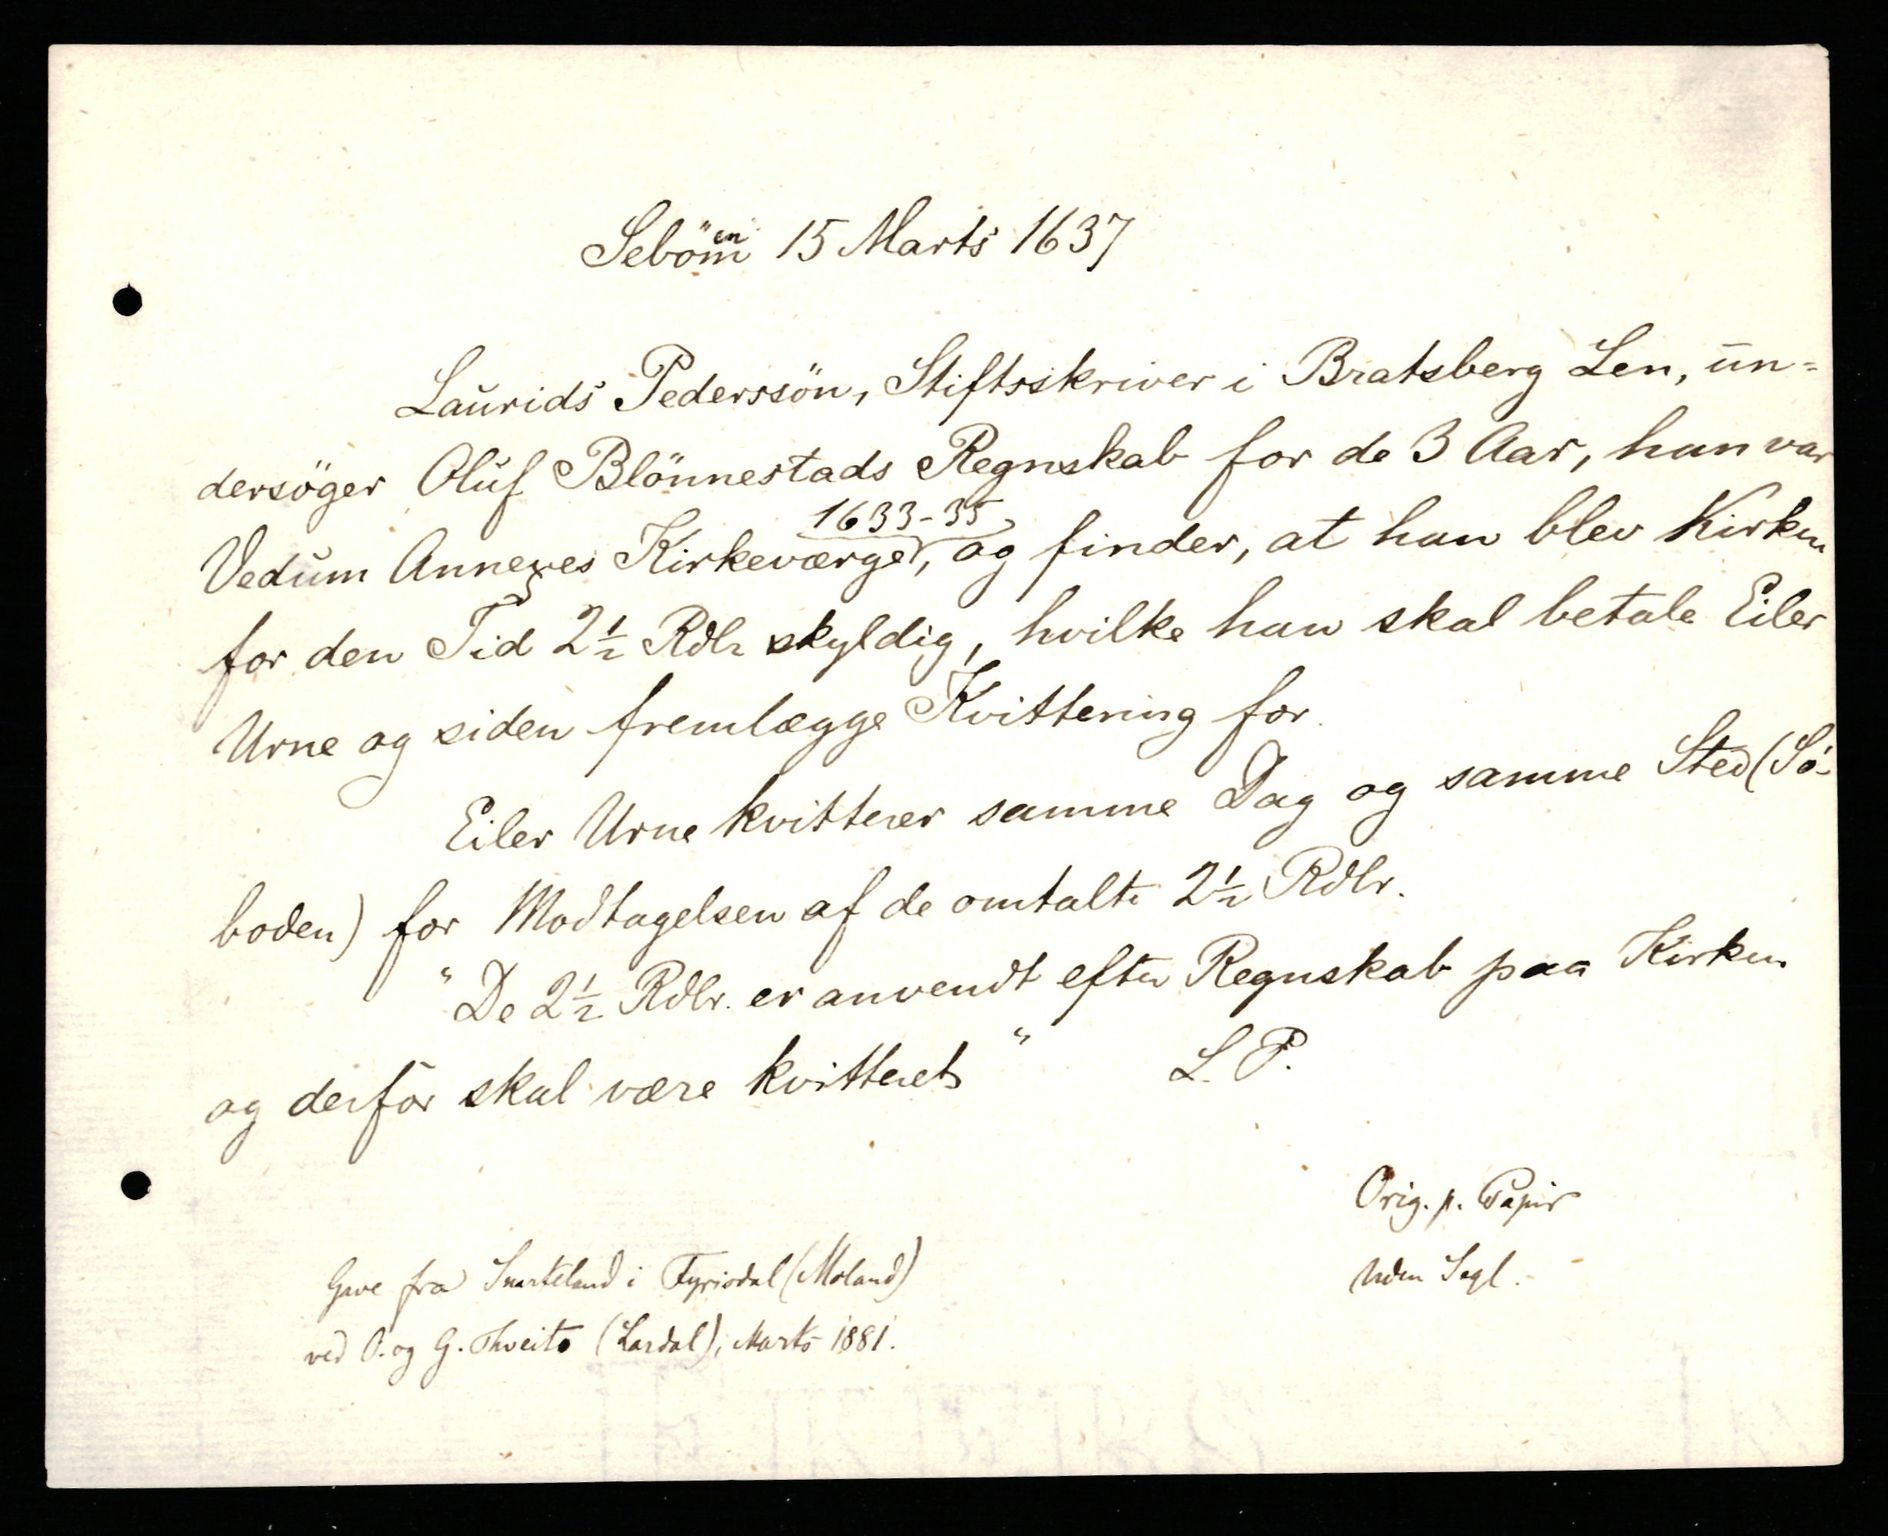 Seböen 15 Marts 1637
Laurids Pederssön, Stiftsskriver i Bratsberg Len, un-
dersöger Oluf Blönnestads Regnskab for de 3 Aar, han var
1633-35
Vedum Annexes Kirkeværge, og finder, at han blev Kirken
for den Tid 2½ Rdlr skyldig, hvilke han skal betale Eiler
Urne og siden fremlægge Kvittering for.
Eiler Urne kvitterer samme Dag og samme Sted (Sö-
boden) for Modtagelsen af de omtalte 2½ Rdlr.
"De 2½ Rdlr. er anvendt efter Regnskab paa Kirken
og derfor skal være kvitteret" L. P.
Orig. p. Papir
Uden Segl.
Gave fra Snarteland i Fyrisdal (Moland)
ved O. og G. Thveito (Lardal), Marts 1881.